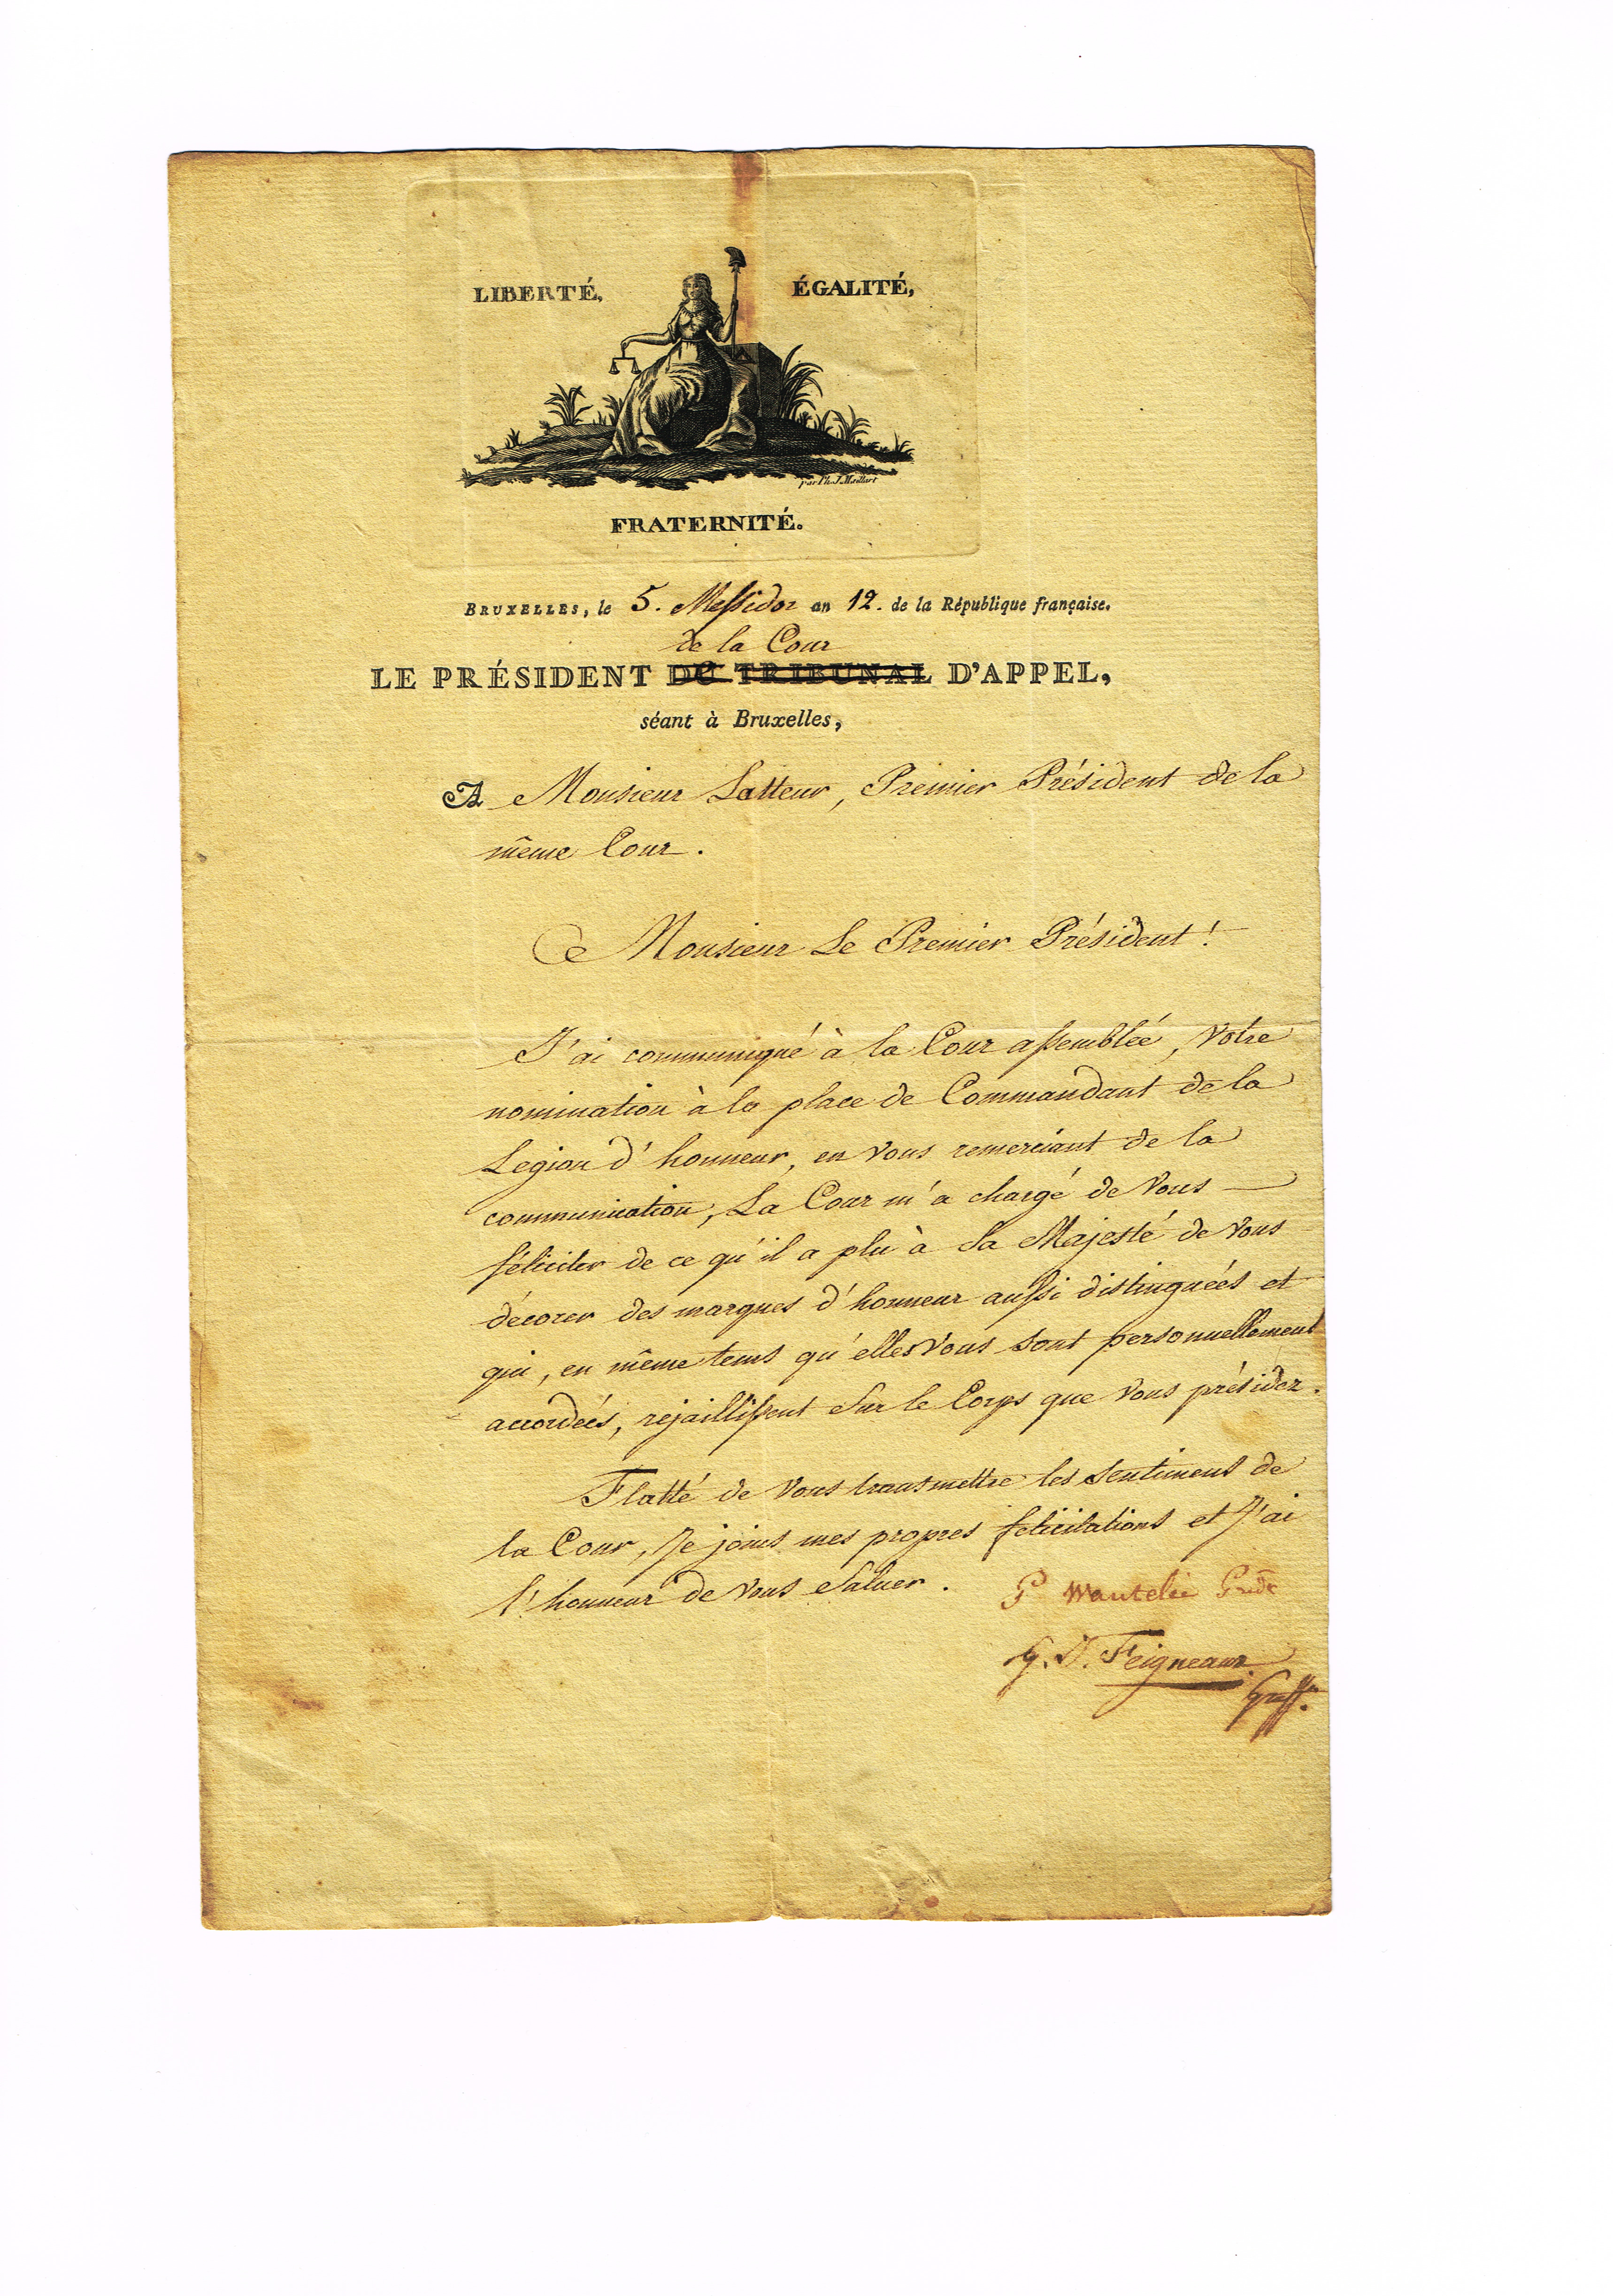 LIBERTÉ, ÉGALITÉ,
par Ph. J. Maillart
FRATERNITÉ.
BRUXELLES, le 5. Messidor an 12. de la République française.
de la Cour
LE PRÉSIDENT DU TRIBUNAL D'APPEL,
séant à Bruxelles,
A Monsieur Latteur, Premier Président de la
même Cour.
Monsieur Le Premier Président!
J'ai communiqué à la Cour assemblée, Votre
nomination à la place de Commandant de la
Legion d'honneur, en Vous remerciant de la
communication, La Cour m'a chargé de Vous
féliciter de ce qu'il a plu à Sa Majesté de Vous
décorer des marques d'honneur aussi distinguées et
qui, en même tems qu'elles Vous sont personnellement
accordées, rejaillissent Sur le Corps que Vous présidez.
Flatté de Vous transmettre les Sentimens de
la Cour, Je joins mes propres félicitations et J'ai
l'honneur de Vous Saluer. P Wautelée Presdt
G. D. Feigneaux
Greff.